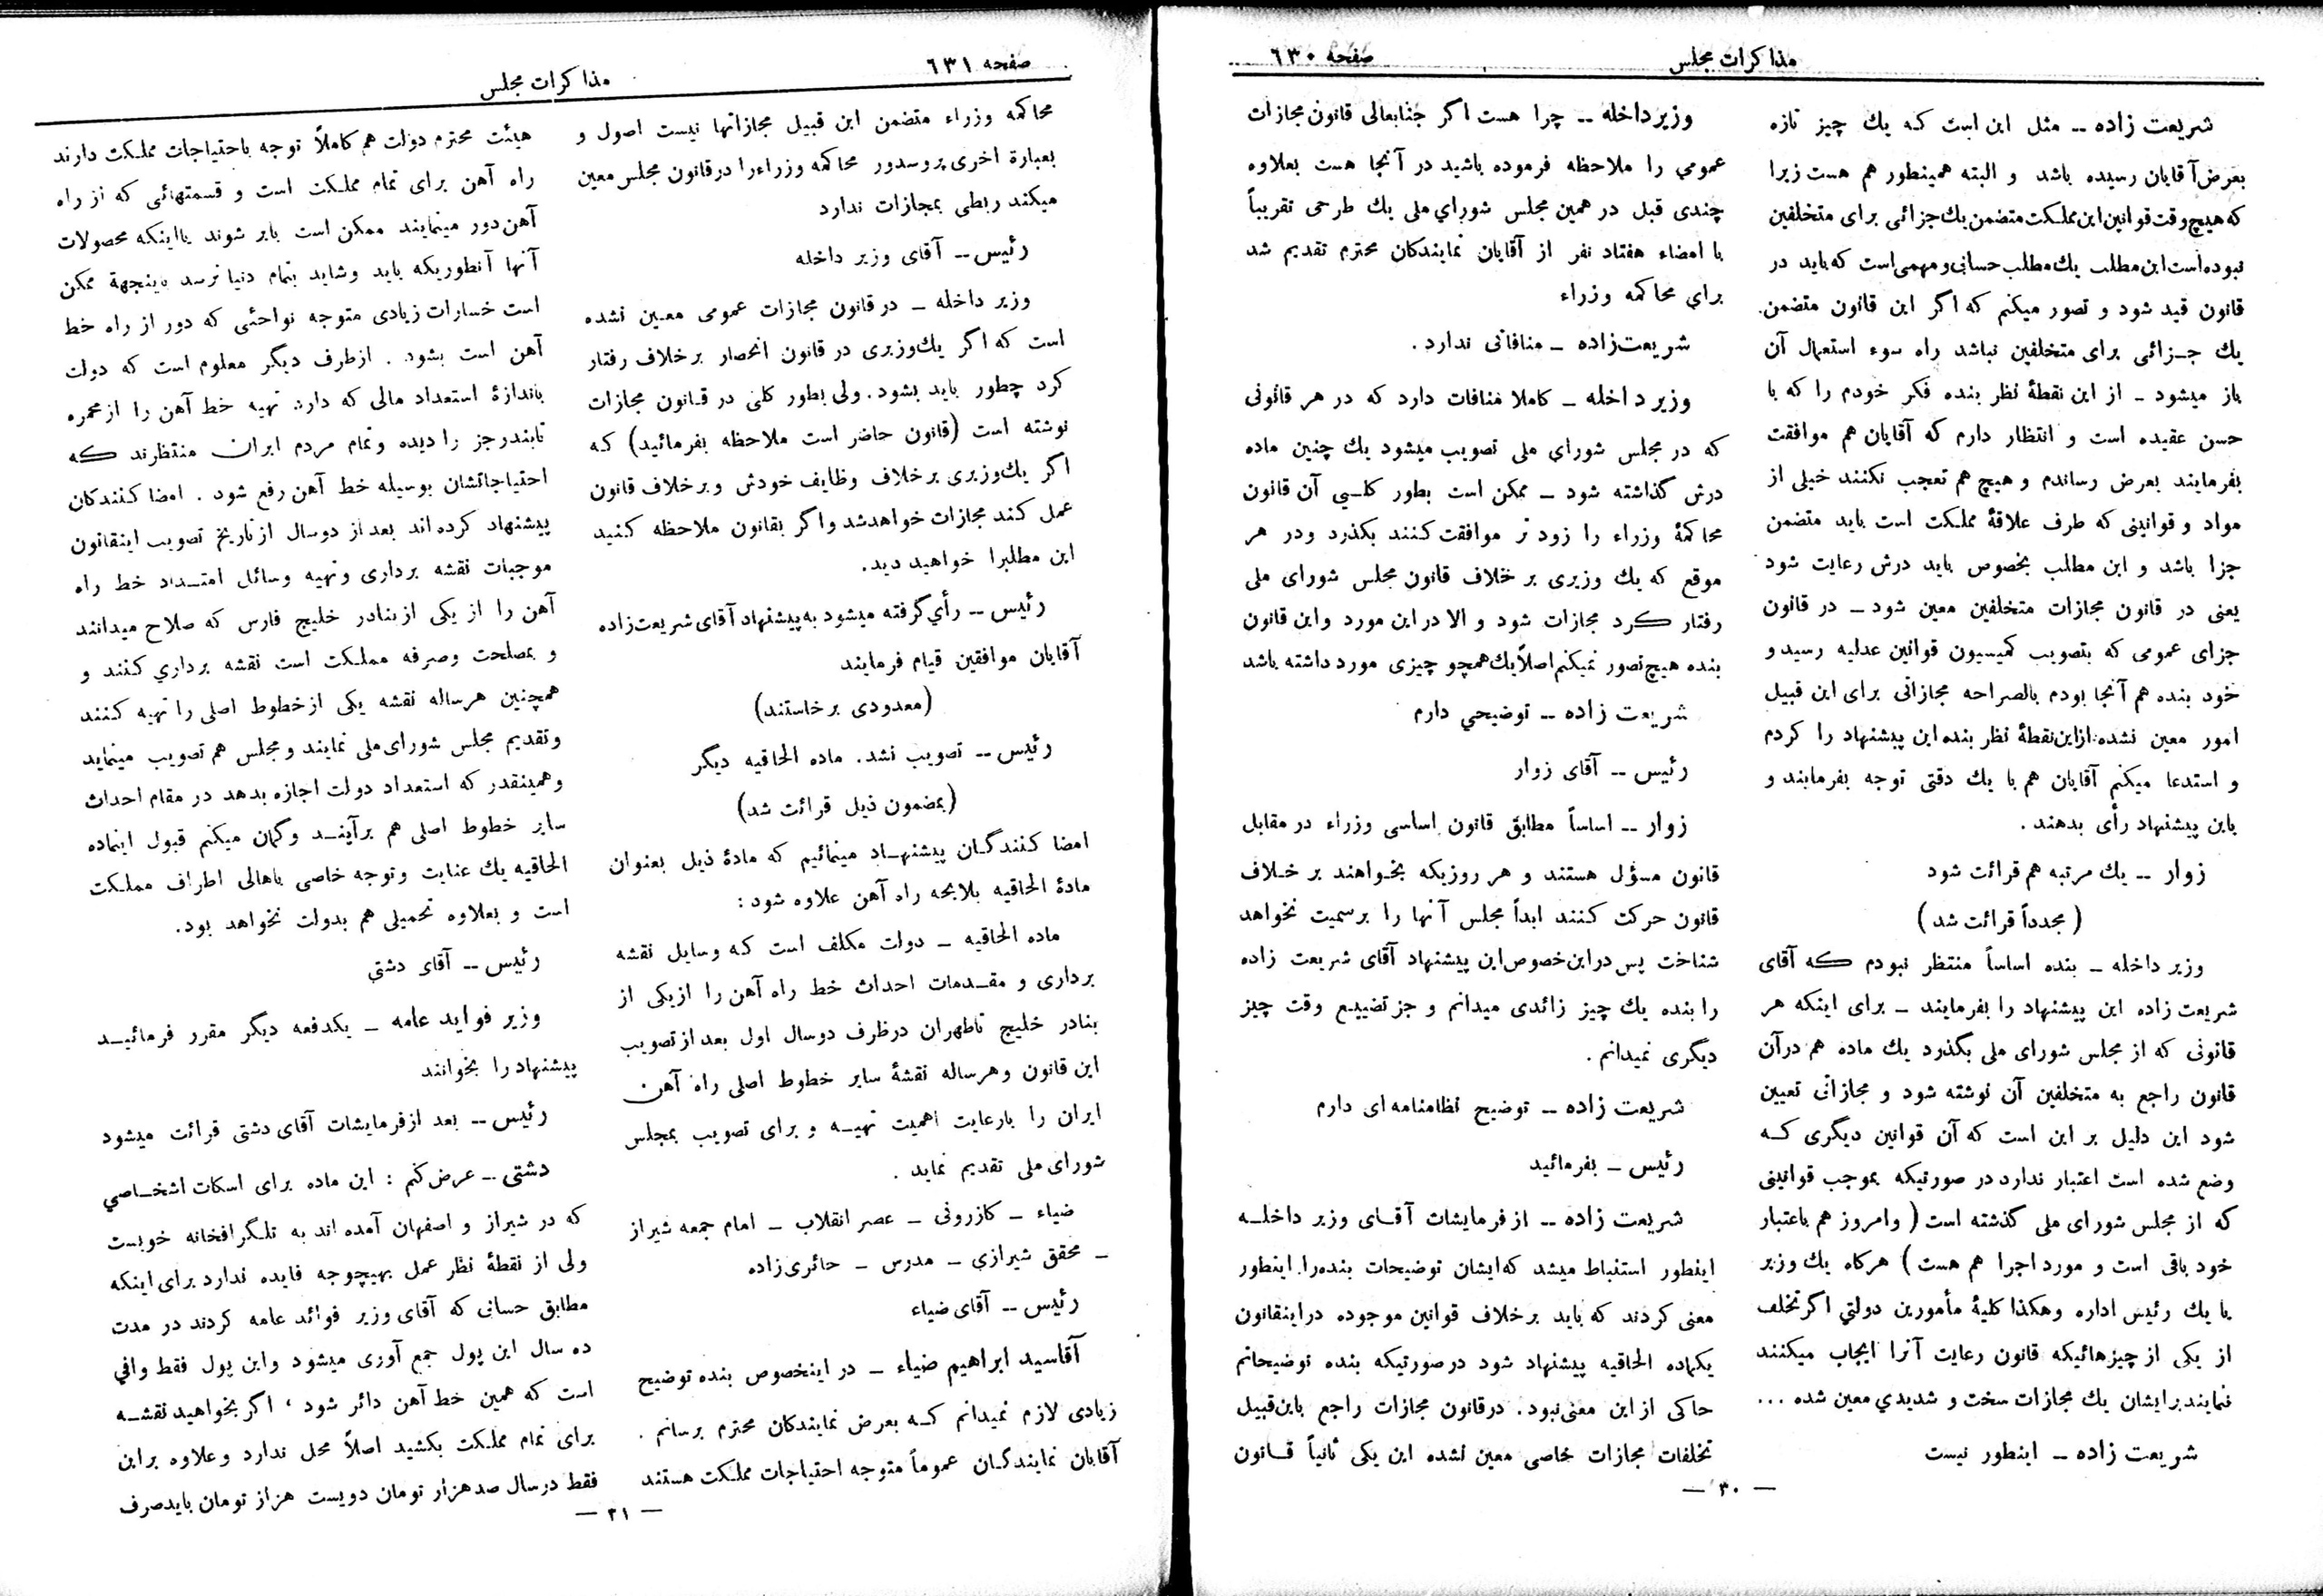 مذاکرات مجلس
صفحه ٦٣٠
شریعت زاده -- مثل این است که یك چیز تازه
بعرض آقایان رسیده باشد و البته همینطور هم هست زیرا
که هیچ وقت قوانین این مملکت متضمن یك جزائی برای متخلفین
نبوده است این مطلب یك مطلب حسابی و مهمی است که باید در
قانون قید شود و تصور میکنم که اگر این قانون متضمن
یك جـزائی برای متخلفین نباشد راه سوء استعمال آن
باز میشود - از این نقطهٔ نظر بنده فکر خودم را که با
حسن عقیده است و انتظار دارم که آقایان هم موافقت
بفرمایند بعرض رساندم و هیچ هم تعجب نکنند خیلی از
مواد و قوانینی که طرف علاقهٔ مملکت است باید متضمن
جزا باشد و این مطلب بخصوص باید درش رعایت شود
یعنی در قانون مجازات متخلفین معین شود - در قانون
جزای عمومی که بتصویب کمیسیون قوانین عدلیه رسید و
خود بنده هم آنجا بودم بالصراحه مجازاتی برای این قبیل
امور معین نشده از این نقطهٔ نظر بنده این پیشنهاد را کردم
و استدعا میکنم آقایان هم با یك دقتی توجه بفرمایند و
باین پیشنهاد رأی بدهند .
زوار -- یك مرتبه هم قرائت شود
( مجدداً قرائت شد )
وزیر داخله - بنده اساساً منتظر نبودم که آقای
شریعت زاده این پیشنهاد را بفرمایند - برای اینکه هر
قانونی که از مجلس شورای ملی بگذرد یك ماده هم درآن
قانون راجع به متخلفین آن نوشته شود و مجازاتی تعیین
شود این دلیل بر این است که آن قوانین دیگری کـه
وضع شده است اعتبار ندارد در صورتیکه بموجب قوانینی
که از مجلس شورای ملی گذشته است ( وامروز هم باعتبار
خود باقی است و مورد اجرا هم هست ) هرگاه یك وزیر
یا یك رئیس اداره وهکذا کلیهٔ مأمورین دولتي اگر تخلف
از یکی از چیزهائیکه قانون رعایت آنرا ایجاب میکنند
نمایند برایشان یك مجازات سخت و شدیدي معین شده ...
شریعت زاده -- اینطور نیست
وزیر داخله -- چرا هست اگر جنابعالی قانون مجازات
عمومي را ملاحظه فرموده باشید در آنجا هست بعلاوه
چندی قبل در همین مجلس شورای ملی یك طرحی تقریباً
با امضاء هفتاد نفر از آقایان نمایندکان محترم تقدیم شد
براي محاکمه وزراء
شریعت‌زاده - منافاتی ندارد .
وزیر داخله - کاملا منافات دارد که در هر قانونی
که در مجلس شوراي ملی تصویب میشود یك چنین ماده
درش گذاشته شود - ممکن است بطور کلـي آن قانون
محاکمهٔ وزراء را زود تر موافقت کنند بگذرد ودر هر
موقع که یك وزیری بر خلاف قانون مجلس شورای ملی
رفتار کرد مجازات شود و الا در این مورد واین قانون
بنده هیچ تصور نمیکنم اصلاً یك همچو چیزی مورد داشته باشد
شریعت زاده -- توضیحي دارم
رئیس -- آقای زوار
زوار -- اساساً مطابق قانون اساسی وزراء در مقابل
قانون مسؤل هستند و هر روزیکه بخـواهند بر خـلاف
قانون حرکت کنند ابداً مجلس آنها را برسمیت نخواهد
شناخت پس در این خصوص این پیشنهاد آقای شریعت زاده
را بنده یك چیز زائدی میدانم و جز تضییع وقت چیز
دیگری نمیدانم .
شریعت زاده -- توضیح نظامنامه ای دارم
رئیس - بفرمائید
شریعت زاده -- از فرمایشات آقـای وزیر داخلـه
اینطور استنباط میشد که ایشان توضیحات بنده‌را اینطور
معنی کردند که باید برخلاف قوانین موجوده دراینقانون
یکماده الحاقیه پیشنهاد شود درصورتیکه بنده توضیحاتم
حاکی از این معنی نبود. درقانون مجازات راجع باین‌قبیل
تخلفات مجازات خاصی معین نشده این یکی ثانیاً قـانون
— ٣٠ —
صفحه ٦٣١
مذاکرات مجلس
محاکمه وزراء متضمن این قبیل مجازاتها نیست اصول و
بعبارة اخری پروسدور محاکمه وزراءرا درقانون مجلس معین
میکند ربطی بمجازات ندارد
رئیس -- آقای وزیر داخله
وزیر داخله - در قانون مجازات عمومی معـین نشده
است که اگر یك‌وزیری در قانون انحصار برخلاف رفتار
کرد چطور باید بشود . ولی بطور کلی در قـانون مجازات
نوشته است (قانون حاضر است ملاحظه بفرمائید) کـه
اگر یك‌وزیری برخلاف وظایف خودش و برخلاف قانون
عمل کند مجازات خواهدشد و اگر بقانون ملاحظه کنید
این مطلبرا خواهید دید.
رئیس -- رأی گرفته میشود به پیشنهاد آقای شریعت‌زاده
آقایان موافقین قیام فرمایند
(معدودی برخاستند)
رئیس -- تصویب نشد. ماده الحاقیه دیگر
(بمضمون ذیل قرائت شد)
امضا کنندگـان پیشنهـاد مینمائیم که مادهٔ ذیل بعنوان
مادهٔ الحاقیه بلایحه راه آهن علاوه شود :
ماده الحاقیه - دولت مکلف است کـه وسایل نقشه
برداری و مقـدمات احداث خط راه آهن را ازیکی از
بنادر خلیج تاطهران درظرف دوسال اول بعد از تصویب
این قانون وهرساله نقشهٔ سایر خطوط اصلی راه آهن
ایران را بارعایت اهمیت تهیـه و برای تصویب بمجلس
شورای ملی تقدیم نماید .
ضیاء - کازرونی - عصر انقلاب - امام جمعه شیراز
- محقق شیرازي - مدرس - حائری‌زاده
رئیس -- آقای ضیاء
آقاسید ابراهیم ضیاء - در اینخصوص بنده توضیح
زیادی لازم نمیدانم کـه بعرض نمایندکان محترم برسانم .
آقایان نمایندگـان عموماً متوجه احتیاجات مملکت هستند
هیئت محترم دولت هم کاملاً توجه باحتیاجات مملکت دارند
راه آهن برای تمام مملکت است و قسمتهائی که از راه
آهن دور مینمایند ممکن است بایر شوند یااینکه محصولات
آنها آنطوریکه باید وشاید بتمام دنیا نرسد باینجهة ممکن
است خسارات زیادی متوجه نواحئی که دور از راه خط
آهن است بشود . ازطرف دیگر معلوم است که دولت
باندازهٔ استعداد مالی که دارد تهیه خط آهن را از محمره
تابندرجز را دیده وتمام مردم ایران منتظرند که
احتیاجاتشان بوسیله خط آهن رفع شود . امضا کنندکان
پیشنهاد کرده اند بعد از دوسال از تاریخ تصویب اینقانون
موجبات نقشه برداری وتهیه وسائل امتـداد خط راه
آهن را از یکی ازبنادر خلیج فارس که صلاح میدانند
و بمصلحت وصرفه مملکت است نقشه برداري کنند و
همچنین هرساله نقشه یکی از خطوط اصلی را تهیه کنند
وتقدیم مجلس شورای ملی نمایند و مجلس هم تصویب مینماید
وهمینقدر که استعداد دولت اجازه بدهد در مقام احداث
سایر خطوط اصلی هم برآینـد وگمان میکنم قبول اینماده
الحاقیه یك عنایت وتوجه خاصی باهالی اطراف مملکت
است و بعلاوه تحمیلی هم بدولت نخواهد بود.
رئیس -- آقای دشتی
وزیر فواید عامه - یکدفعه دیگر مقرر فرمائیـد
پیشنهاد را بخوانند
رئیس -- بعد ازفرمایشات آقای دشتی قرائت میشود
دشتی -- عرض کنم : این ماده برای اسکات اشخـاصي
که در شیراز و اصفهان آمده اند به تلگرافخانه خوبست
ولی از نقطهٔ نظر عمل بهیچوجه فایده ندارد برای اینکه
مطابق حسابی که آقای وزیر فوائد عامه کردند در مدت
ده سال این پول جمع آوری میشود واین پول فقط وافي
است که همین خط آهن دائر شود ، اگر بخواهید نقشـه
برای تمام مملکت بکشید اصلاً محل ندارد وعلاوه براین
فقط درسال صدهزار تومان دویست هزار تومان بایدصرف
— ٣١ —